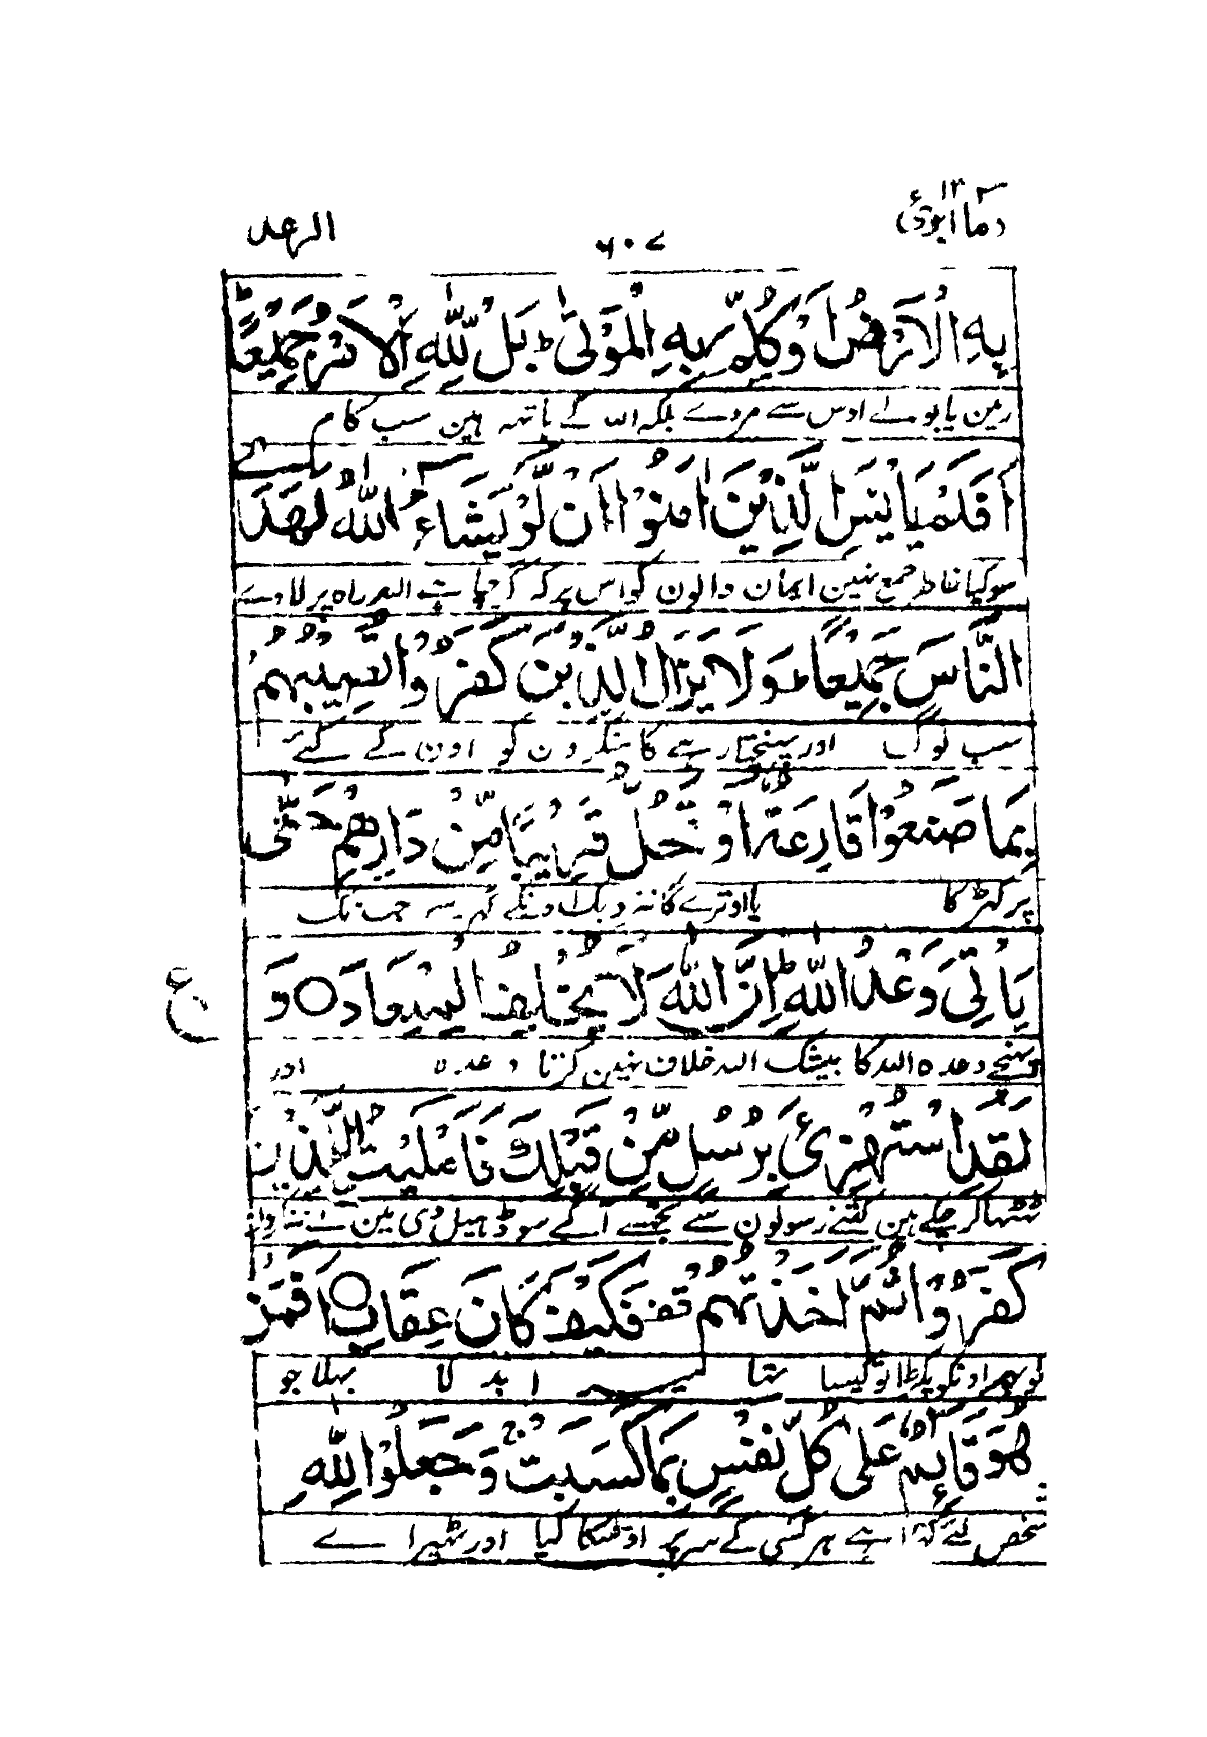 وما ابرئ ١٣
٦٠٧
الرعد
بِهِ الْاَرْضُ اَوْ كُلِّمَ بِهِ الْمَوْتٰى ؕ بَلْ لِّلّٰهِ الْاَمْرُ جَمِیْعًا ؕ
زمین یا بولے اوس سے مردے بلکہ اللہ کے ہاتھہ ہین سب کام
اَفَلَمْ یَایْـَٔسِ الَّذِیْنَ اٰمَنُوْۤا اَنْ لَّوْ یَشَآءُ اللّٰهُ لَهَدَی
سو کیا خاطر جمع نہین ایمان والون کو اس پر کہ اگر چاہے اللہ راہ پر لاوے
النَّاسَ جَمِیْعًا ؕ وَلَا یَزَالُ الَّذِیْنَ كَفَرُوْا تُصِیْبُهُمْ
سب لوگ اور پہنچتا رہے گا منکرون کو اون کے کئے
بِمَا صَنَعُوْا قَارِعَةٌ اَوْ تَحُلُّ قَرِیْبًا مِّنْ دَارِهِمْ حَتّٰی
پر کھڑکا یا اوترے گا نزدیک اونکے گھر سے جب تک
یَاْتِیَ وَعْدُ اللّٰهِ ؕ اِنَّ اللّٰهَ لَا یُخْلِفُ الْمِیْعَادَ ○ وَ
ع
پہنچے وعدہ اللہ کا بیشک اللہ خلاف نہین کرتا وعدہ اور
لَقَدِ اسْتُهْزِئَ بِرُسُلٍ مِّنْ قَبْلِكَ فَاَمْلَیْتُ لِلَّذِیْنَ
ٹھٹھا کر چکے ہین کتنے رسولون سے تجھسے آگے سو ڈھیل دی مین نے
كَفَرُوْا ثُمَّ اَخَذْتُهُمْ قف فَكَیْفَ كَانَ عِقَابِ ○ اَفَمَنْ
پھر اونکو پکڑا تو کیسا تھا میرا بدلا بھلا جو
هُوَ قَآئِمٌ عَلٰی كُلِّ نَفْسٍ بِمَا كَسَبَتْ ۚ وَجَعَلُوْا لِلّٰهِ
شخص لئے کھڑا ہے ہر کسی کے سر پر اوسکا کیا اور ٹھیراے